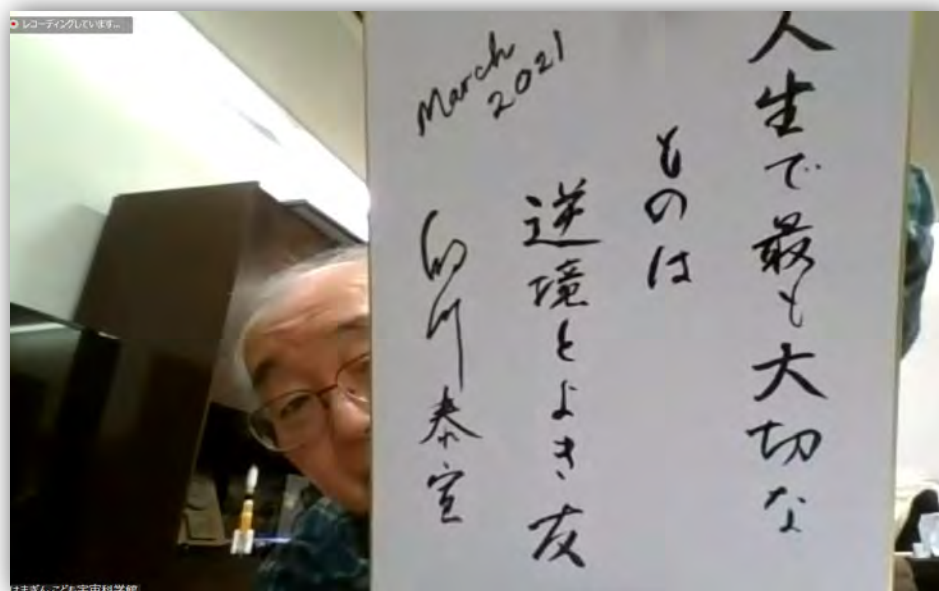 レコーディングしています...
人生で最も大切な
ものは
逆境とよき友
March
2021
的川泰宣
はまぎんこども宇宙科学館